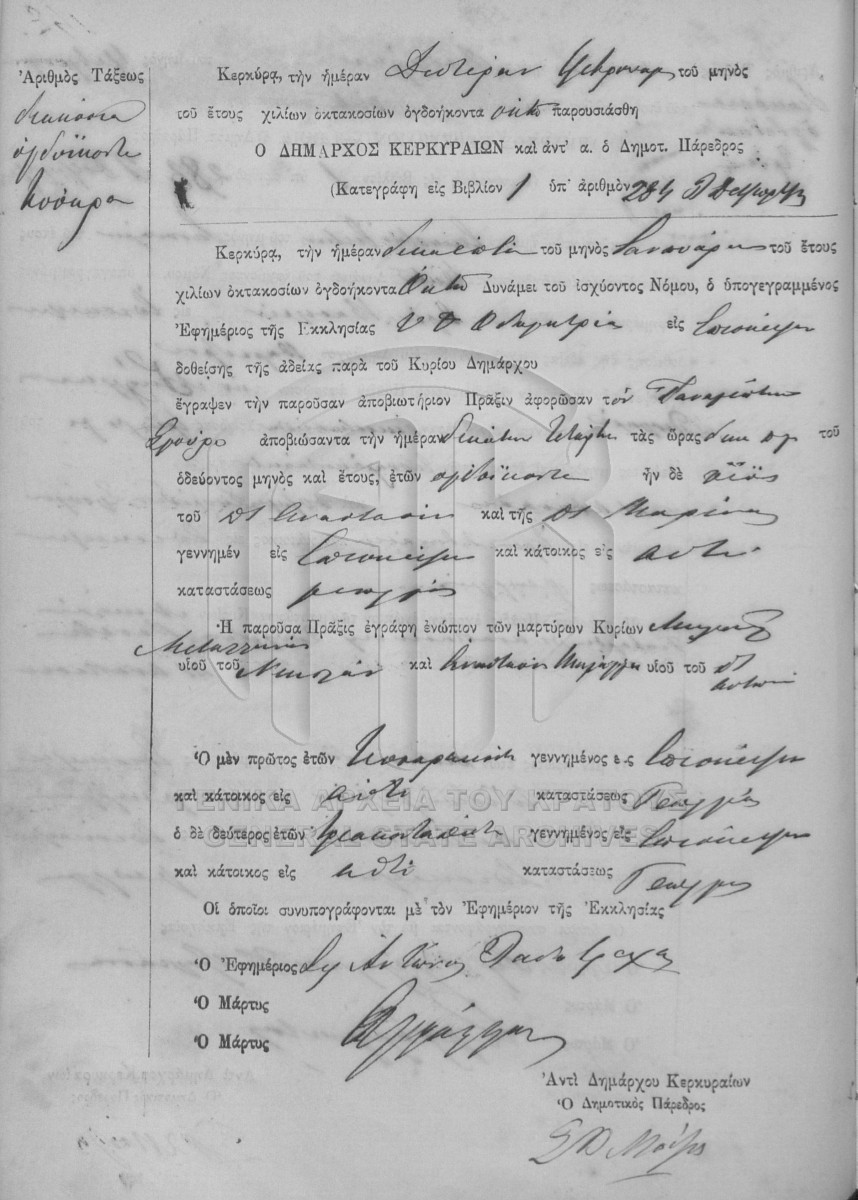 Ἀριθμὸς Τάξεως
διακόσια
ὀγδοήκοντα
τέσσαρα
Κερκύρᾳ, τὴν ἡμέραν Δευτέραν Φεβρουαρ τοῦ μηνὸς
τοῦ ἔτους χιλίων ὀκτακοσίων ὀγδοήκοντα ὀκτὼ παρουσιάσθη
Ο ΔΗΜΑΡΧΟΣ ΚΕΡΚΥΡΑΙΩΝ καὶ ἀντ' α. ὁ Δημοτ. Πάρεδρος
(Κατεγράφη εἰς Βιβλίον 1 ὑπ' ἀριθμὸν 284
Κερκύρᾳ, τὴν ἡμέραν δεκάτῃ τοῦ μηνὸς Ἰανουάρ τοῦ ἔτους
χιλίων ὀκτακοσίων ὀγδοήκοντα ὀκτὼ Δυνάμει τοῦ ἰσχύοντος Νόμου, ὁ ὑπογεγραμμένος
Ἐφημέριος τῆς Ἐκκλησίας Υ Θ Οδηγητρία εἰς Ἐπισκεψιν
δοθείσης τῆς ἀδείας παρὰ τοῦ Κυρίου Δημάρχου
ἔγραψεν τὴν παροῦσαν ἀποβιωτήριον Πρᾶξιν ἀφορῶσαν τὸν Παναγιώτην
ἀποβιώσαντα τὴν ἡμέραν δεκάτην τετάρτη τὰς ὥρας τοῦ
ὁδεύοντος μηνὸς καὶ ἔτους, ἐτῶν ὀγδοήκοντα ἦν δὲ υἱὸς
τοῦ πτ Ἀναστασίου καὶ τῆς πτ Μαρίνας
γεννημέν εἰς Ἐπίσκεψιν καὶ κάτοικος εἰς αὐτὴ
καταστάσεως γεωργός
Ἡ παροῦσα Πρᾶξις ἐγράφη ἐνώπιον τῶν μαρτύρων Κυρίων
υἱοῦ τοῦ Νικολάου καὶ Ἀναστασίου υἱοῦ τοῦ πτ
Ἀντωνί
Ὁ μὲν πρῶτος ἐτῶν τεσσαράκοντα γεννημένος εἰς Ἐπίσκεψιν
καὶ κάτοικος εἰς αὐτὴ καταστάσεως Γεωργός
ὁ δὲ δεύτερος ἐτῶν τριακονταπέντε γεννημένος εἰς Ἐπίσκεψιν
καὶ κάτοικος εἰς αὐτὴ καταστάσεως Γεωργός
ΓΕΝΙΚΑ ΑΡΧΕΙΑ ΤΟΥ ΚΡΑΤΟΥΣ
GENERAL STATE ARCHIVES
Οἱ ὁποῖοι συνυπογράφονται μὲ τὸν Ἐφημέριον τῆς Ἐκκλησίας
Ὁ Ἐφημέριος Ἀντώνιος
Ὁ Μάρτυς
Ὁ Μάρτυς
Ἀντὶ Δημάρχου Κερκυραίων
Ὁ Δημοτικὸς Πάρεδρος